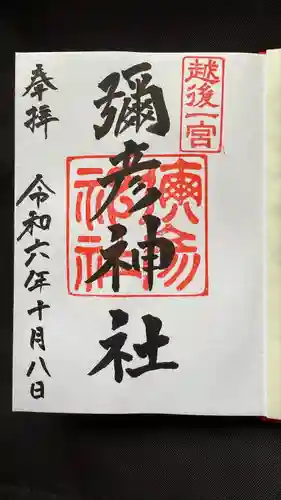 越後一宮
彌彦神社
奉拝
令和六年十月八日